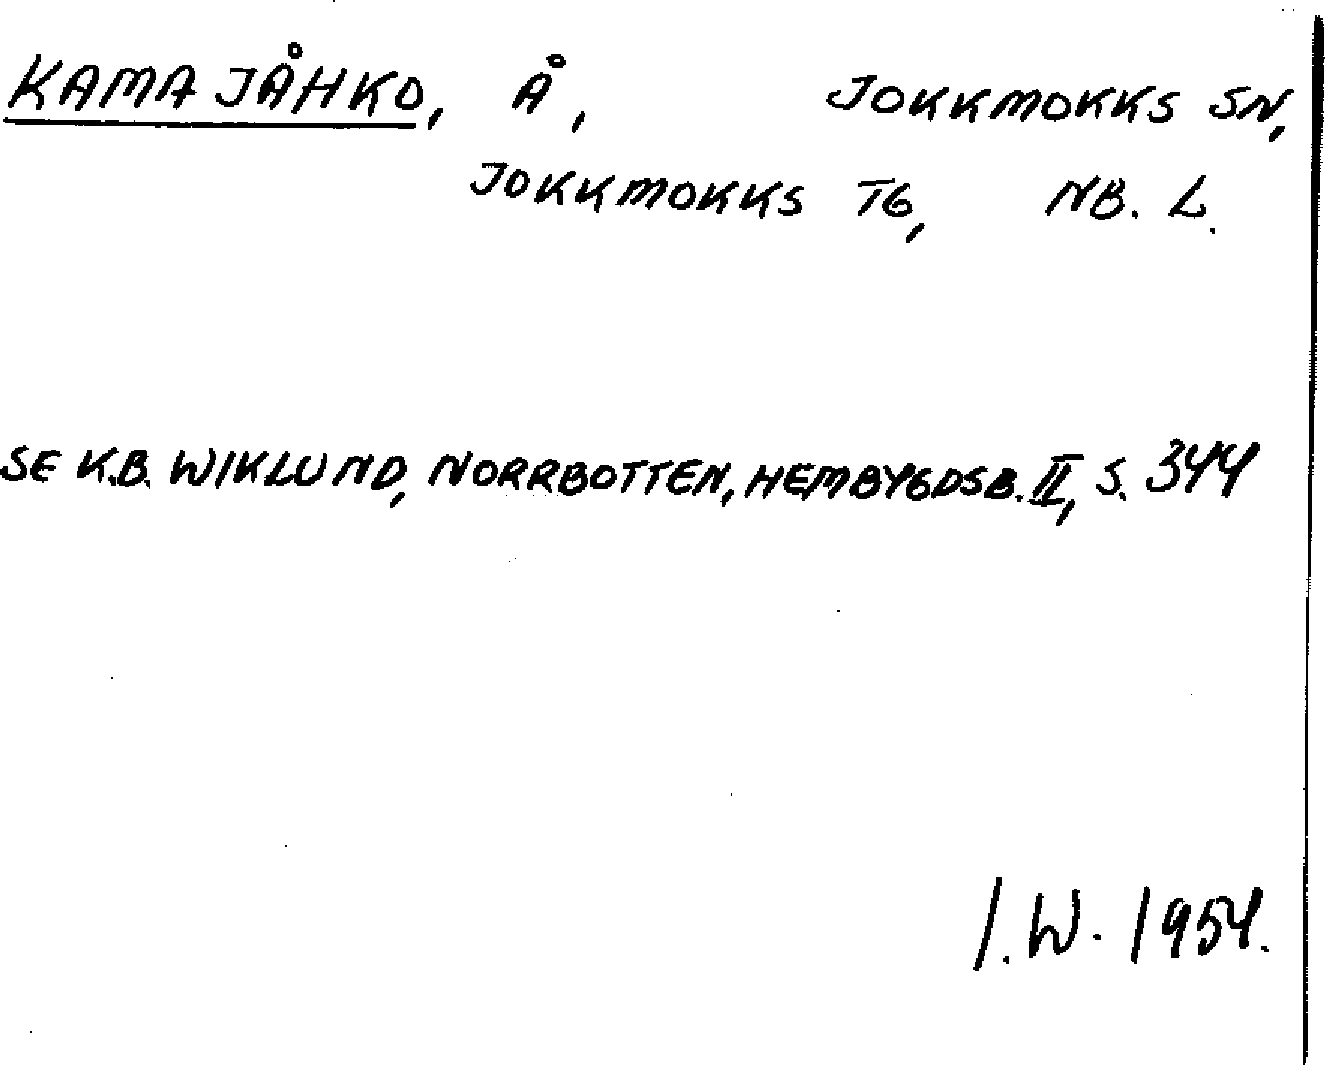 KAMAJÅHKO, Å, JOKKMOKKS SN,
JOKKMOKKS TG, NB. L.
SE K.B. WIKLUND, NORRBOTTEN, HEMBYGDSB. II, S. 344
I. W. 1954.